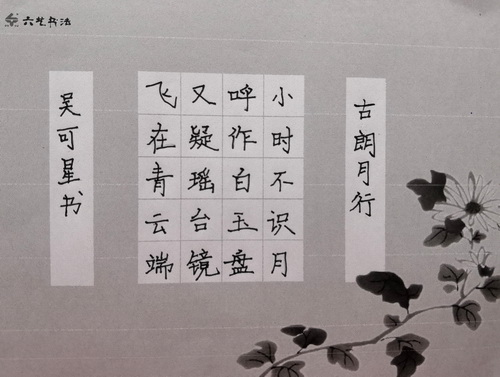 六艺书法
古朗月行
小时不识月
呼作白玉盘
又疑瑶台镜
飞在青云端
吴可星书